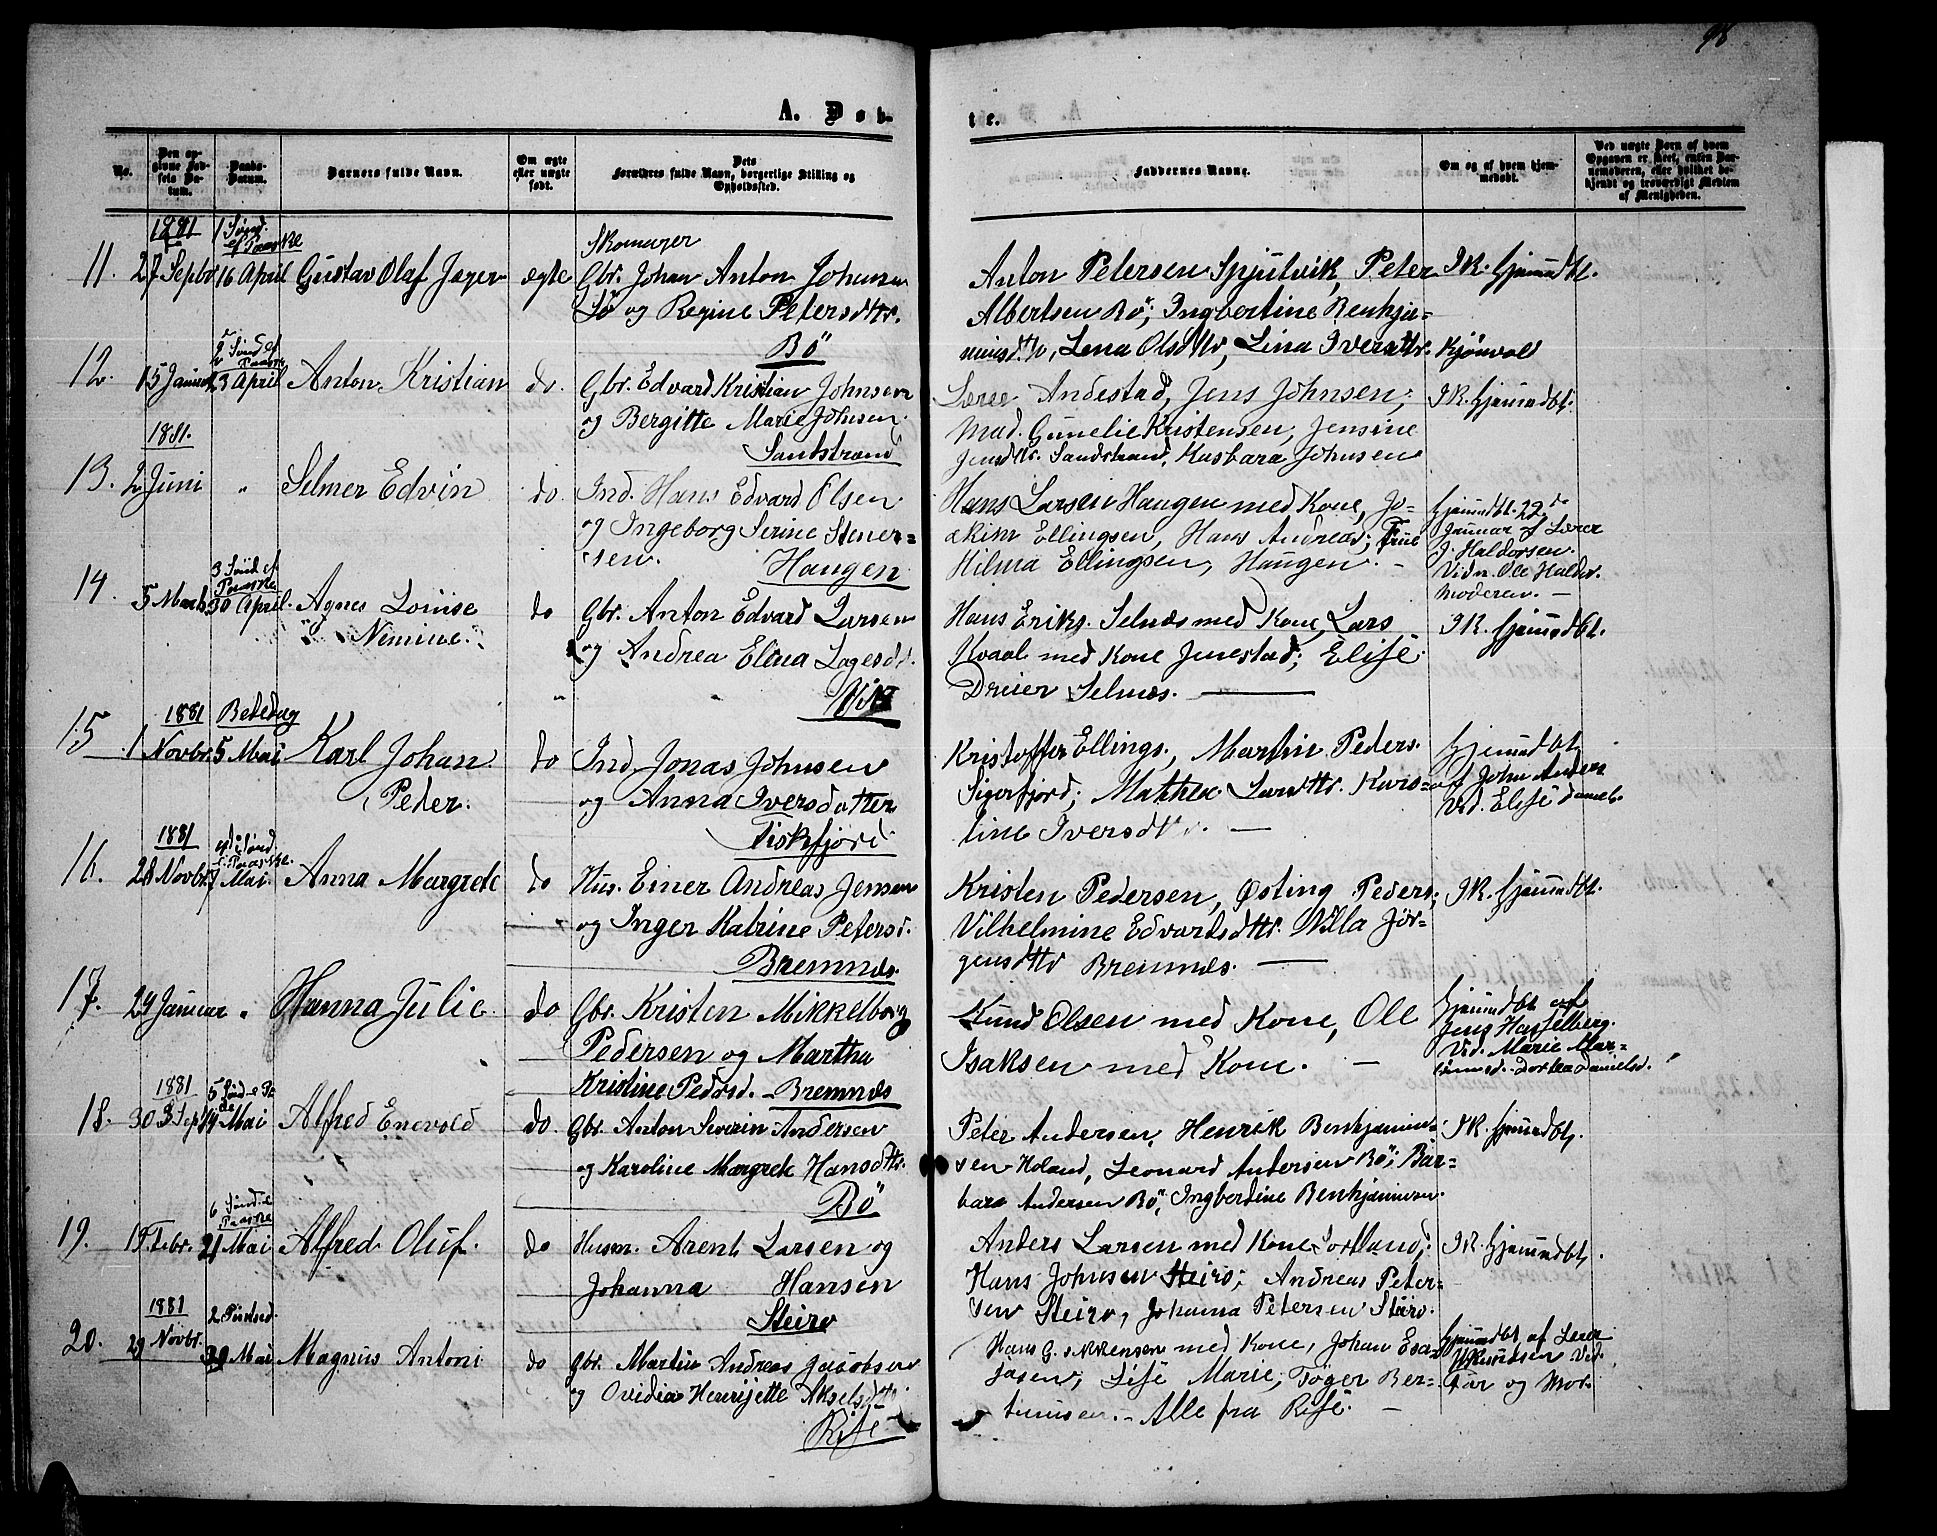 98
A. Døb-
te.
No.
Den op-
givne Fød-
sels Da-
tum.
Daabs-
Datum.
Barnets fulde Navn.
Om ægte
eller uægte
født.
Dets
Forældres fulde Navn, borgerlige Stilling og
Opholdssted.
Faddernes Navne.
Om og af hvem hjem-
medøbt.
Ved uægte Børn af hvem
Opgaven er skeet, enten Bar-
nemoderen, eller hvilket be-
kjendt og troværdigt Medlem
af Menigheden.
1881 1 Sønd.
ef Paaske
11. 27 Septbr 16 April Gustav Olaf Jæger ægte
Skomager
Gbr. Johan Anton Johnsen
Bø og Regine Petersdttr.
Bö
Anton Petersen Spjutvik, Peter
Albertsen Bö; Ingbertine Benhja-
minsdttr, Lena Olsdttr, Lina Iversdttr. Kjönvold
IK. hjemmedbt.
2 Sönd ef
Paaske
12. 15 Januar 23 April Anton Kristian do.
Gbr. Edvard Kristian Johnsen
og Bergitte Marie Johnsen.
Sandstrand
Lærer Andestad, Jens Johnsen;
Mad. Gunelie Kristensen, Jensine
Jensdttr. Sandstrand, Kasbara Johnsen
IK. hjemmedbt.
1881.
13. 2 Juni " Selmer Edvin do
Ind. Hans Edvard Olsen
og Ingeborg Serine Stener-
sen. Haugen
Hans Larsen Haugen med Kone, Jo-
akim Ellingsen, Hans Andreas; Frue
Hilma Ellingsen, Haugen. -
hjemmdbt. 22de
Januar af Lærer
J. Haldorsen.
Vidn. Ole Haldor.
Moderen. —
3 Sönd ef
Paaske
14. 5 Marts 30 April. Agnes Louise
Nimine. do
Gbr. Anton Edvard Larsen
og Andrea Elina Lagesdt.
Vik
Hans Eriks. Selnæs med Kone, Lars
Kvaal med Kone Jenestad; Elise
Driver Selnæs. —
IK. hjemmedbt.
1881 Bededag
15. 1 Novbr. 5 Mai Karl Johan
Peder. do
Ind. Jonas Johnsen
og Anna Iversdatter
Fiskfjord
Kristoffer Ellings., Martin Peders.
Sigerfjord; Mathea Larsdttr. Karo-
line Iversdttr. —
hjemmdbt
af John Anders
Vid. Elise Daniels.
1881 4de Sönd.
e. Paaske.
16. 28 Novbr. 7 Mai. Anna Margrete do
Hus. Einer Andreas Jensen
og Inger Katrine Petersd.
Bremnes.
Kristen Pedersen, Østing Peders;
Vilhelmine Edvardsdttr. Villa Jör-
gensdttr Bremnes. —
IK. hjemmedbt.
17. 29 Januar " Hanna Julie do
Gbr. Kristen Mikkelborg
Pedersen og Martha
Kristine Pedersd. - Bremnæs
Knud Olsen med Kone, Ole
Isaksen med Kone. —
hjemmdbt af
Jens Hasselberg.
Vid. Marie Mar-
Dorthea Danielsd.
1881 5 Sönd e Pa
18. 30 Sept 14 Mai Alfred Enevold do.
Gbr. Anton Severin Andersen
og Karoline Margrete Hansdttr.
Bö
Peter Andersen, Henrik Benhjamin-
sen Holand, Leonard Andersen Bö; Bar-
bara Andersen Bö, Ingbertine Benhjaminsen.
IK. hjemmdbt.
6 Sönd e
Paaske
19. 19 Febr. 21 Mai Alfred Oluf. do
Husm. Arent Larsen og
Johanna Hansen
Steiro
Anders Larsen med Kone Sortland;
Hans Johnsen Steiro; Andreas Peter-
sen Steiro, Johanna Petersen Steiro.
IK. hjemmdbt.
1881 2. Pintsed.
20. 29 Novbr. 29 Mai Magnus Antoni do
Gbr. Martin Andreas Jacobsen
og Ovidia Henrijette Akselsdttr
Rise
Hans G. med Kone, Johan Esa-
iasen; Lise Marie; Töger Ber-
tinusen. - Alle fra Rise. —
hjemmdbt af Lærer
Knudsen Vid.
Far og Mor.